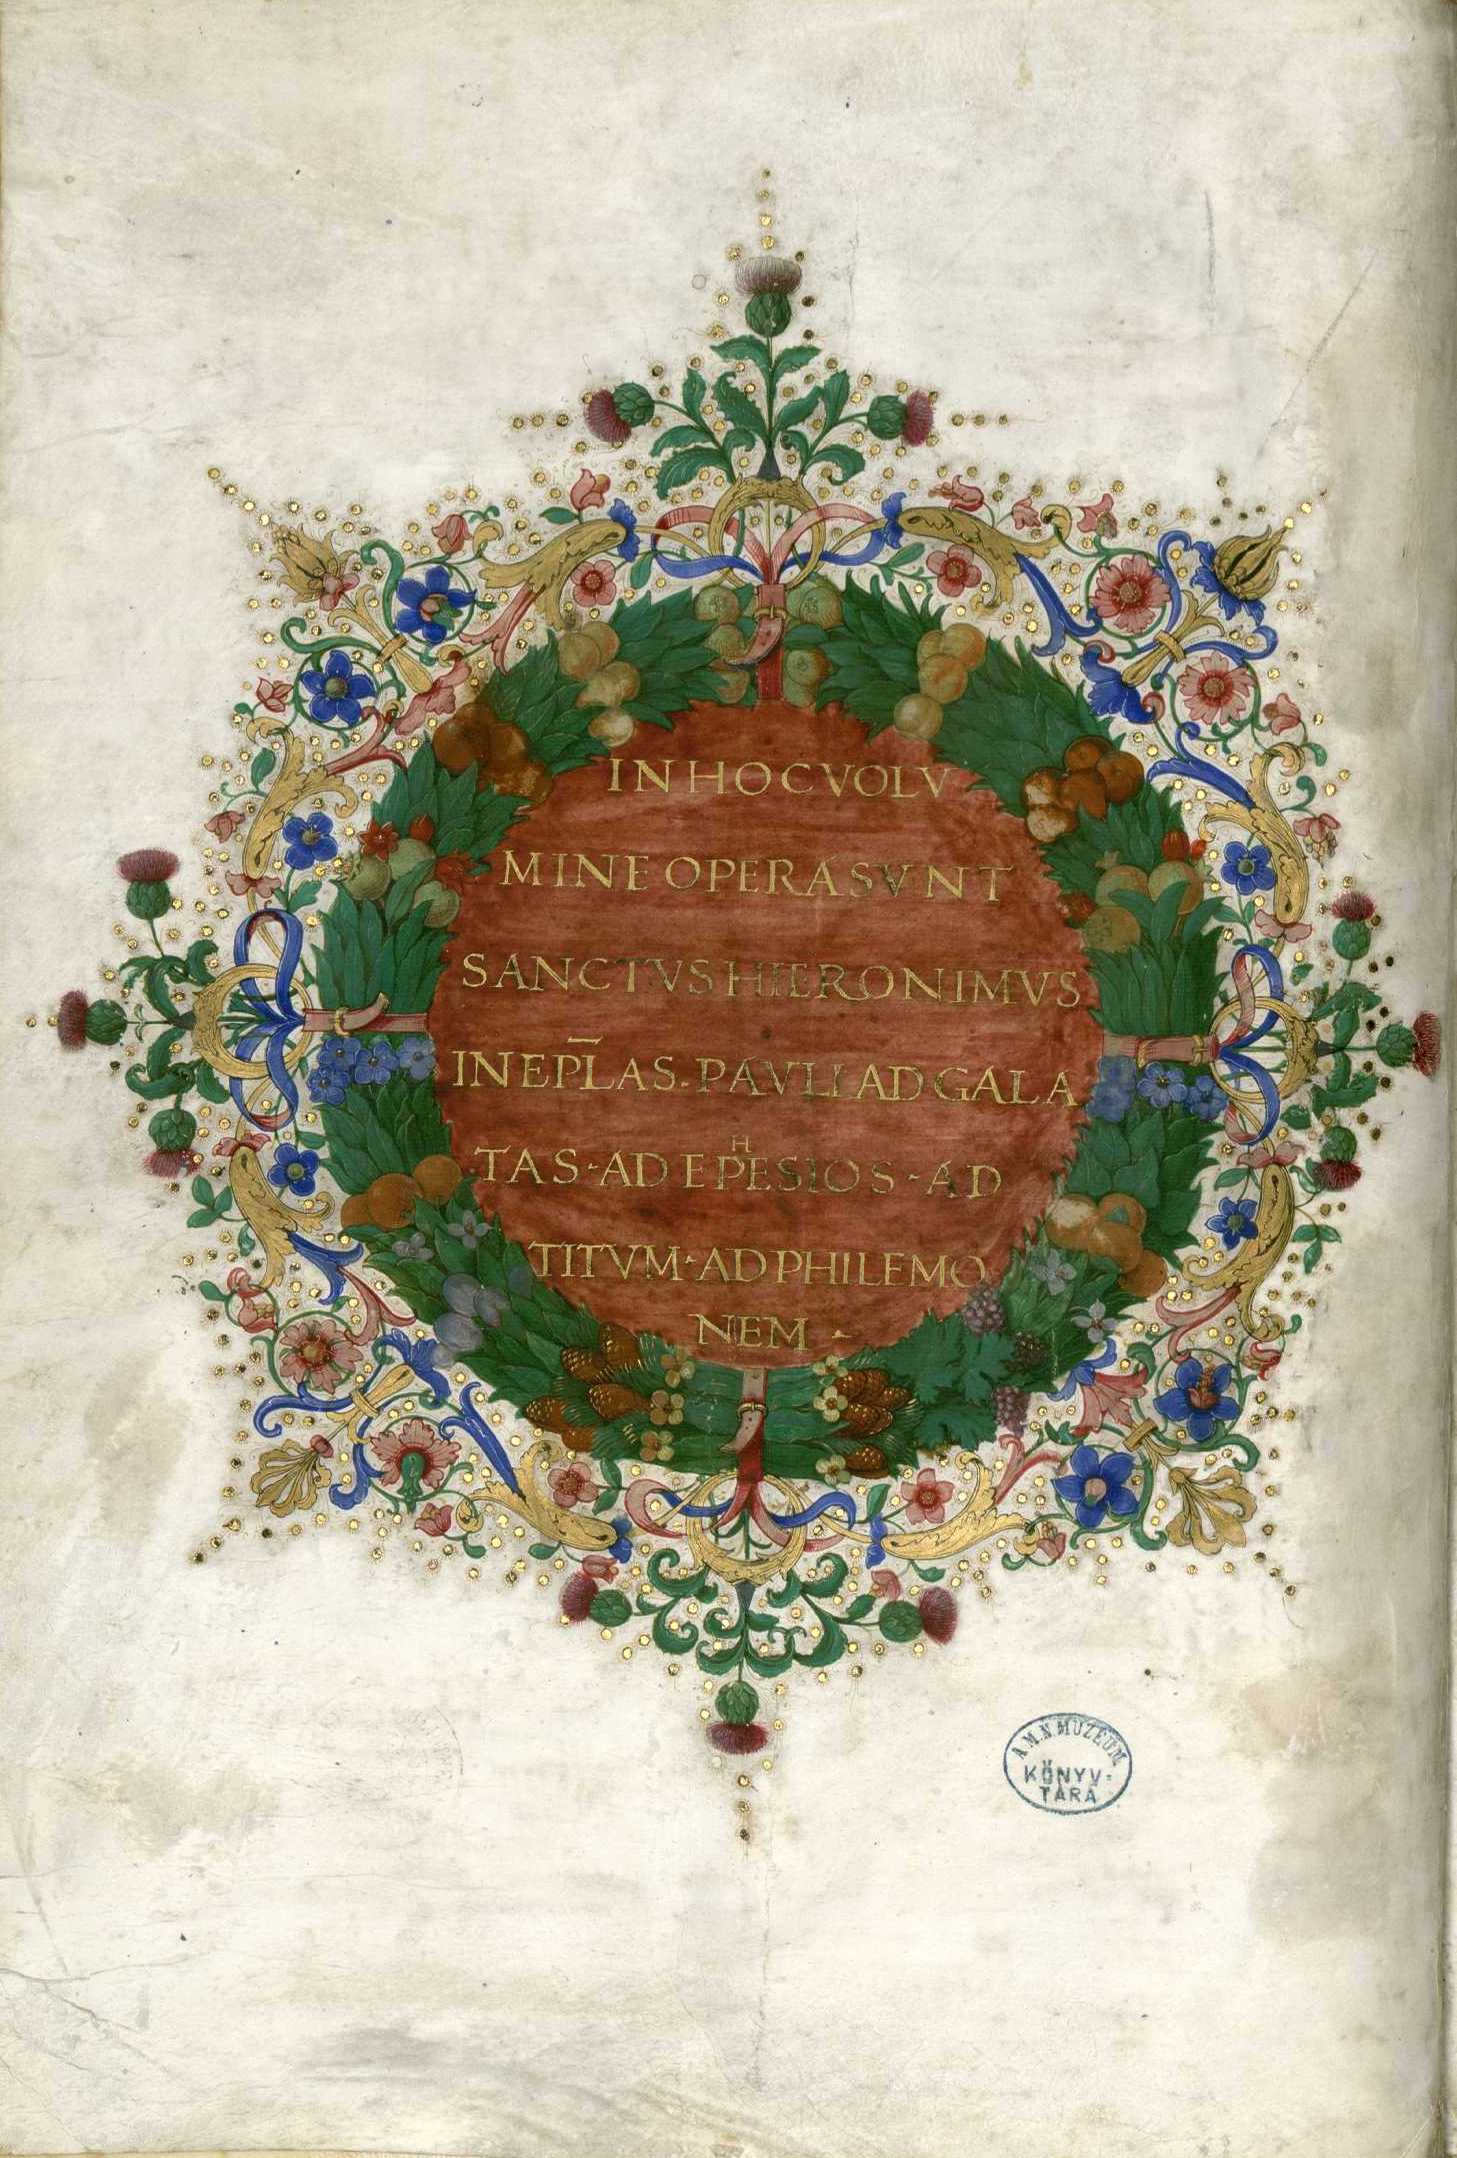 IN HOC VOLV
MINE OPERA SVNT
SANCTVS HIERONIMVS
IN EPL̅AS. PAVLI AD GALA
TAS · AD EPHESIOS · AD
TITVM · AD PHILEMO
NEM ·
A M. N. MUZEUM
KÖNYV-
TÁRA